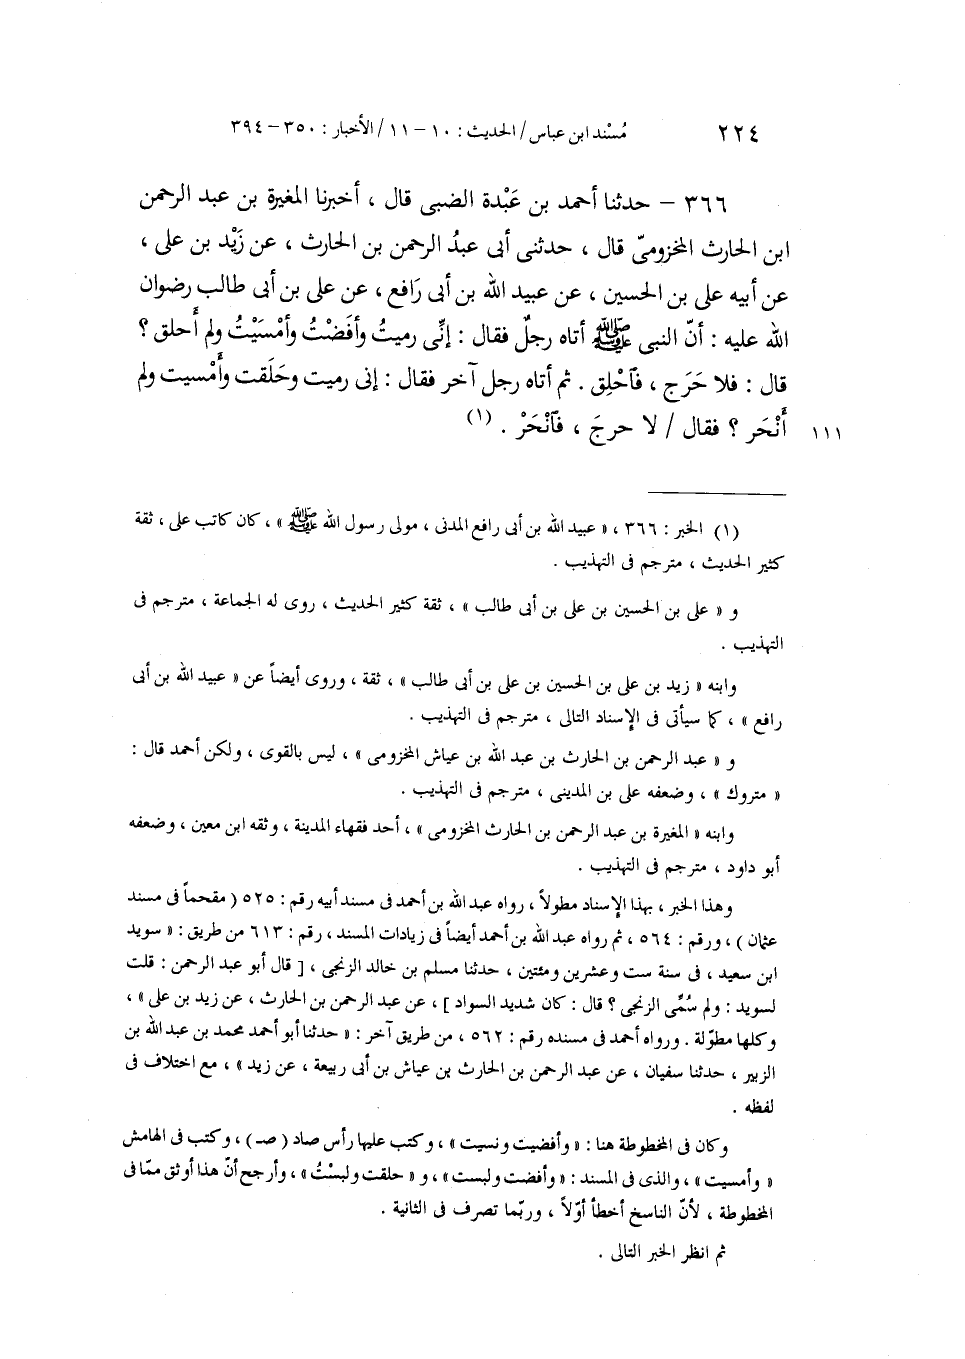 ٢٢٤ مُسْند ابن عباس / الحديث : ١٠ - ١١ / الأخبار : ٣٥٠ - ٣٩٤
٣٦٦ - حدثنا أحمد بن عَبْدة الضبى قال ، أخبرنا المغيرة بن عبد الرحمن
ابن الحارث المخزومىّ قال ، حدثنى أبى عبدُ الرحمن بن الحارث ، عن زَيْد بن على ،
عن أبيه على بن الحسين ، عن عبيد الله بن أبى رَافع ، عن على بن أبى طالب رضوان
الله عليه : أنّ النبى ﷺ أتاه رجلٌ فقال : إنِّى رميتُ وأفَضْتُ وأمْسَيْتُ ولم أَحلق ؟
قال : فلا حَرَج ، فَآحْلِق . ثم أتاه رجل آخر فقال : إنى رميت وحَلَقت وأَمْسيت ولم
أَنْحَر ؟ فقال / لا حرجَ ، فَآنْحَرْ . (١) ١١١
(١) الخبر : ٣٦٦ ، « عبيد الله بن أبى رافع المدنى ، مولى رسول الله ﷺ » ، كان كاتب على ، ثقة
كثير الحديث ، مترجم فى التهذيب .
و « على بن الحسين بن على بن أبى طالب » ، ثقة كثير الحديث ، روى له الجماعة ، مترجم فى
التهذيب .
وابنه « زيد بن على بن الحسين بن على بن أبى طالب » ، ثقة ، وروى أيضاً عن « عبيد الله بن أبى
رافع » ، كما سيأتى فى الإسناد التالى ، مترجم فى التهذيب .
و « عبد الرحمن بن الحارث بن عبد الله بن عياش المخزومى » ، ليس بالقوى ، ولكن أحمد قال :
« متروك » ، وضعفه على بن المدينى ، مترجم فى التهذيب .
وابنه « المغيرة بن عبد الرحمن بن الحارث المخزومى » ، أحد فقهاء المدينة ، وثقه ابن معين ، وضعفه
أبو داود ، مترجم فى التهذيب .
وهذا الخبر ، بهذا الإسناد مطولاً ، رواه عبد الله بن أحمد فى مسند أبيه رقم : ٥٢٥ ( مقحماً فى مسند
عثمان ) ، ورقم : ٥٦٤ ، ثم رواه عبد الله بن أحمد أيضاً فى زيادات المسند ، رقم : ٦١٣ من طريق : « سويد
ابن سعيد ، فى سنة ست وعشرين ومئتين ، حدثنا مسلم بن خالد الزنجى ، [ قال أبو عبد الرحمن : قلت
لسويد : ولم سُمِّى الزنجى ؟ قال : كان شديد السواد ] ، عن عبد الرحمن بن الحارث ، عن زيد بن على » ،
وكلها مطوّلة . ورواه أحمد فى مسنده رقم : ٥٦٢ ، من طريق آخر : « حدثنا أبو أحمد محمد بن عبد الله بن
الزبير ، حدثنا سفيان ، عن عبد الرحمن بن الحارث بن عياش بن أبى ربيعة ، عن زيد » ، مع اختلاف فى
لفظه .
وكان فى المخطوطة هنا : « وأفضيت ونسيت » ، وكتب عليها رأس صاد ( صـ ) ، وكتب فى الهامش
« وأمسيت » ، والذى فى المسند : « وأفضت ولبست » ، و « حلقت ولبسْتُ » ، وأرجح أنّ هذا أوثق ممّا فى
المخطوطة ، لأنّ الناسخ أخطأ أوّلاً ، وربّما تصرف فى الثانية .
ثم انظر الخبر التالى .